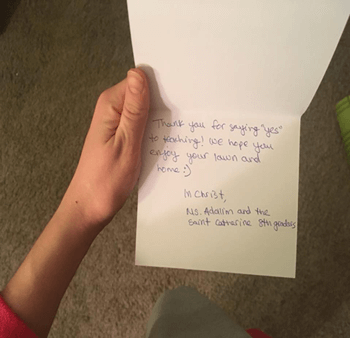 Thank you for saying "yes"
to flocking! We hope you
enjoy your lawn and
home :)
In Christ,
Ms. Adalim and the
Saint Catherine 8th graders